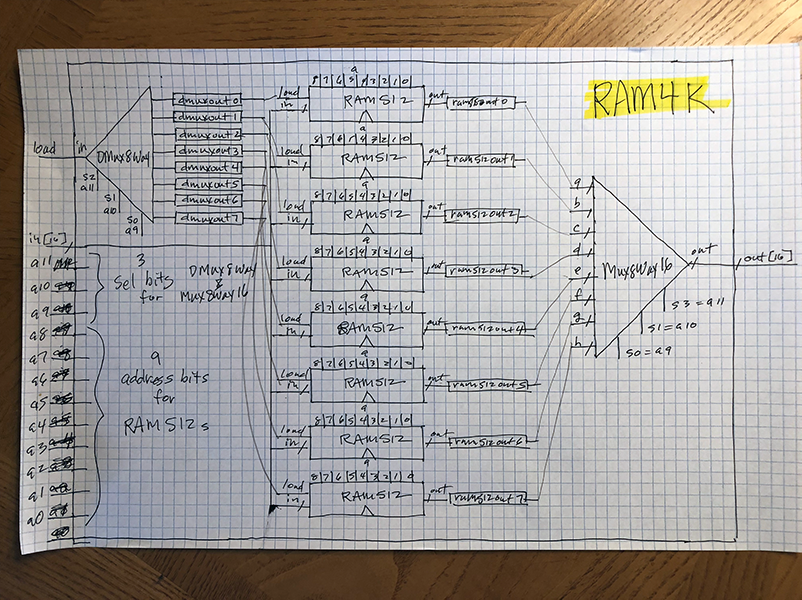 RAM4K
load
in
DMux8Way
s2
a11
s1
a10
s0
a9
dmuxout 0
dmuxout 1
dmuxout 2
dmuxout 3
dmuxout 4
dmuxout 5
dmuxout 6
dmuxout 7
in[16]
a11
a10
a9
a8
a7
a6
a5
a4
a3
a2
a1
a0
3
Sel bits
for
DMux8Way
&
Mux8Way16
9
address bits
for
RAM512s
a
8 7 6 5 4 3 2 1 0
load
in
RAM512
out
ram512out0
a
8 7 6 5 4 3 2 1 0
load
in
RAM512
out
ram512out1
a
8 7 6 5 4 3 2 1 0
load
in
RAM512
out
ram512out2
a
8 7 6 5 4 3 2 1 0
load
in
RAM512
out
ram512out3
a
8 7 6 5 4 3 2 1 0
load
in
RAM512
out
ram512out4
a
8 7 6 5 4 3 2 1 0
load
in
RAM512
out
ram512out5
a
8 7 6 5 4 3 2 1 0
load
in
RAM512
out
ram512out6
a
8 7 6 5 4 3 2 1 0
load
in
RAM512
out
ram512out7
a
b
c
d
e
f
g
h
Mux8Way16
out
out[16]
s3=a11
s1=a10
s0=a9